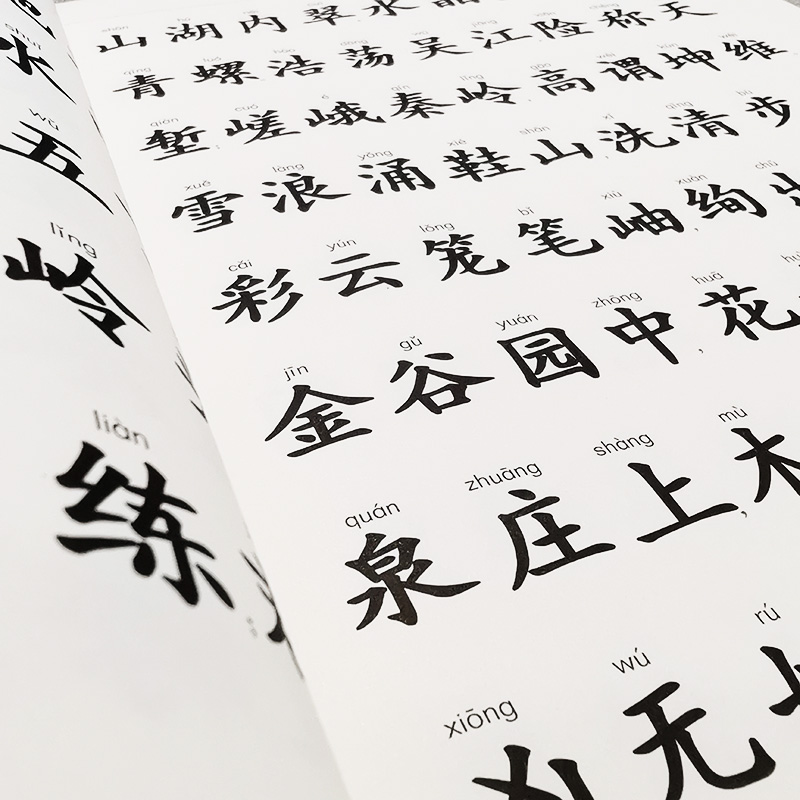 水
wǔ
五
lǐng
岭
liàn
练
山湖内翠水晶
qīng luó hào dàng wú jiāng xiǎn chēng tiān
青螺浩荡吴江险称天
qiàn cuó é qín lǐng gāo wèi kūn wéi
堑,嵯峨秦岭高谓坤维
xuě làng yǒng xié shān xǐ qīng bù
雪浪涌鞋山,洗清步
cǎi yún lóng bǐ xiù xuàn chū
彩云笼笔岫,绚出
jīn gǔ yuán zhōng huā
金谷园中,花
quán zhuāng shàng mù
泉庄上,木
xiōng wú rú
凶无